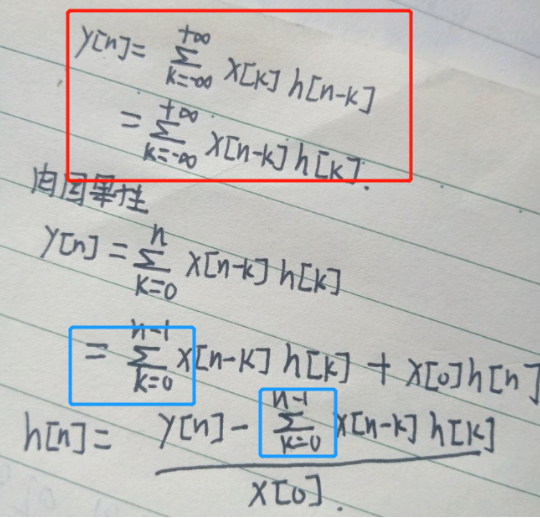 y[n] = \sum_{k=-\infty}^{+\infty} x[k] h[n-k]
= \sum_{k=-\infty}^{+\infty} x[n-k] h[k].
由因果性
y[n] = \sum_{k=0}^{n} x[n-k] h[k]
= \sum_{k=0}^{n-1} x[n-k] h[k] + x[0] h[n]
h[n] = \frac{y[n] - \sum_{k=0}^{n-1} x[n-k] h[k]}{x[0]}.